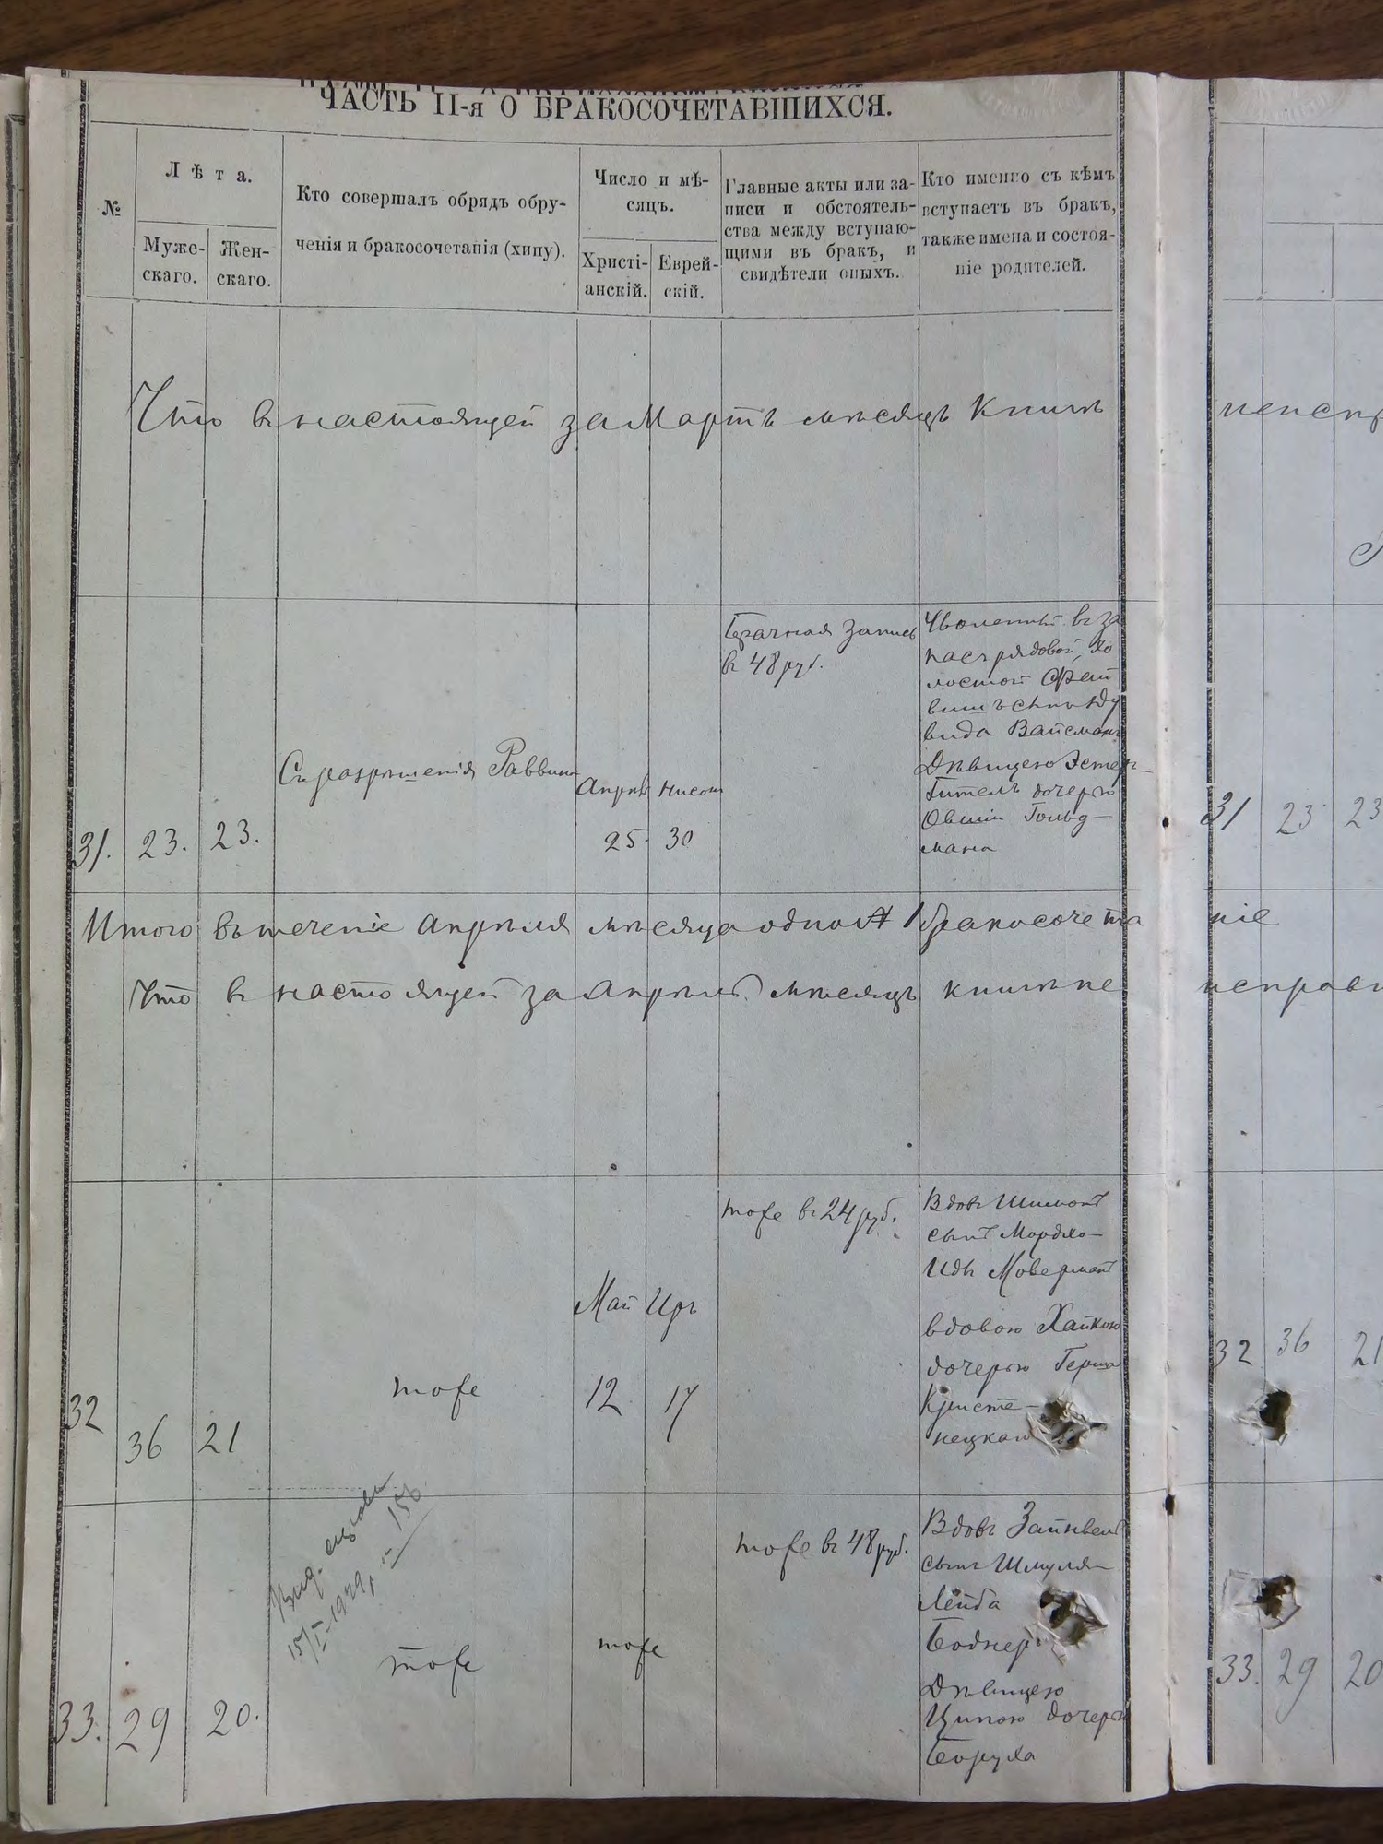 ЧАСТЬ II-я О БРАКОСОЧЕТАВШИХСЯ.
№
Лѣта.
Мужс-
скаго.
Жен-
скаго.
Кто совершалъ обрядъ обру-
ченія и бракосочетанія (хипу).
Число и мѣ-
сяцъ.
Христі-
анскій.
Еврей-
скій.
Главные акты или за-
писи и обстоятель-
ства между вступаю-
щими въ бракъ, и
свидѣтели оныхъ.
Кто именно съ кѣмъ
вступаетъ въ бракъ,
также имена и состоя-
ніе родителей.
Что в настоящей за Мартъ мѣсяцъ книгѣ
31. 23. 23.
Съ разрѣшенія Раввина
Апрѣль
25
Нисонъ
30
Брачная запись
въ 48 руб.
Уволенный въ за
пасъ рядовой, хо
лостой
сынъ Ду
вида Вайсманъ
Дѣвицею Эстер-
Гитель дочерью
Овшіи Гольд-
мана
31 23 23
Итого въ теченіе Апрѣля мѣсяца одно 1 бракосочета
ніе
Что в настоящей за Апрѣль мѣсяцъ книгѣ не
исправ
32 36 21
тоже
Май
12
Иръ
17
тоже въ 24 руб.
Вдовъ Шимонъ
сынъ Мордхо-
Идъ
вдовою Хайкою
дочерью Герша
нецкаго
32 36 21
33. 29 20.
тоже
тоже
тоже въ 48 руб.
Вдовъ Зайнвель
сынъ Шмуля-
Лейба
Боднер
Дѣвицею
Ципою дочерью
Боруха
33. 29 20
15/I-1929,
156